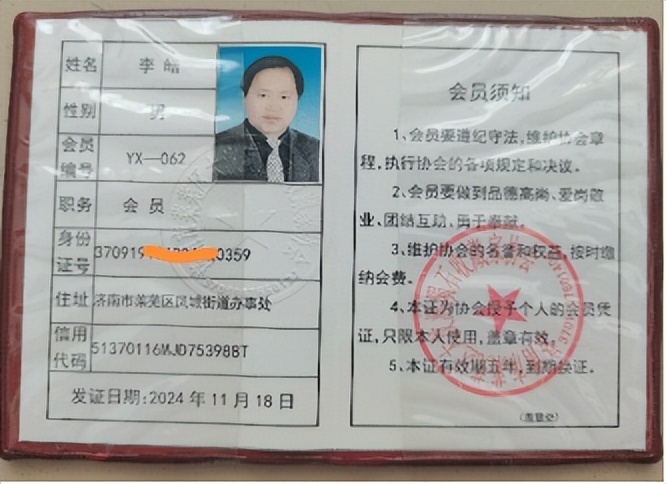 姓名 李皓
性别 男
会员编号 YX—062
职务 会员
身份证号 37091919 0359
住址 济南市莱芜区凤城街道办事处
信用代码 51370116MJD75398BT
发证日期:2024年11月18日
会员须知
1、会员要遵纪守法,维护协会章
程,执行协会的各项规定和决议。
2、会员要做到品德高尚、爱岗敬
业、团结互助、勇于奉献。
3、维护协会的名誉和权益,按时缴
纳会费。
4、本证为协会授予个人的会员凭
证,只限本人使用,盖章有效。
5、本证有效期五年,到期换证。
(盖章处)